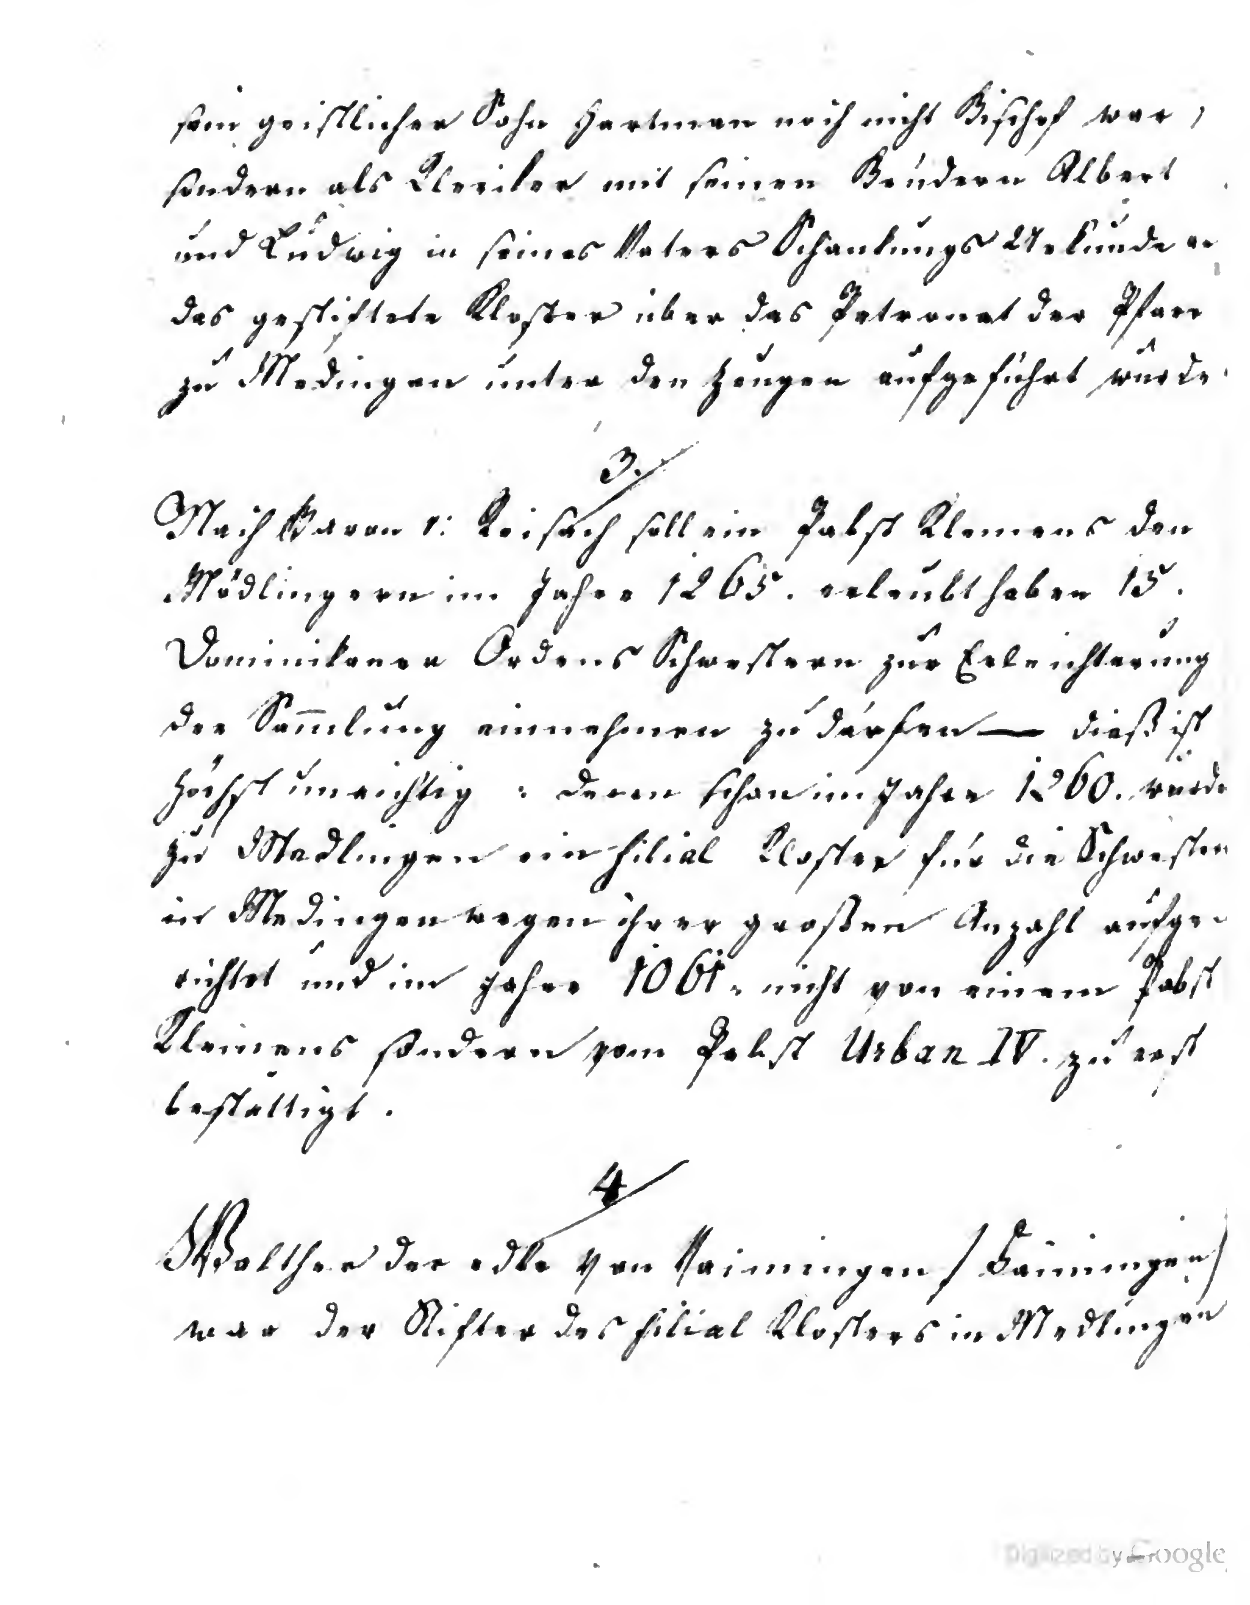 sein geistlicher Sohn Hartman noch nicht Bischof war,
sondern als Kleriker mit seinen Brüdern Albert
und Ludwig in seines Vaters Schankungs Urkunde an
das gestiftete Kloster über das Patronat der Pfarr
zu Medingen unter den Zeugen aufgeführt wurde.
3.
Nach Baron v: Reisach soll ein Pabst Klemens den
Mödlingern im Jahre 1265. erlaubt haben 15.
Dominikaner Ordens Schwestern zur Erleichterung
der Sam̅lung einnehmen zu dürfen — dieß ist
höchst unrichtig : denn schon im Jahre 1260. wurde
zu Medlingen ein filial Kloster für die Schwestern
in Medingen wegen ihrer großen Anzahl aufge-
richtet und im Jahre 1061. nicht von einem Pabst
Klemens sondern vom Pabst Urban IV. zu erst
bestättigt.
4
Walther der edle von Vaimingen / Faimingen /
war der Stifter des filial Klosters in Medlingen
Digitized by Google